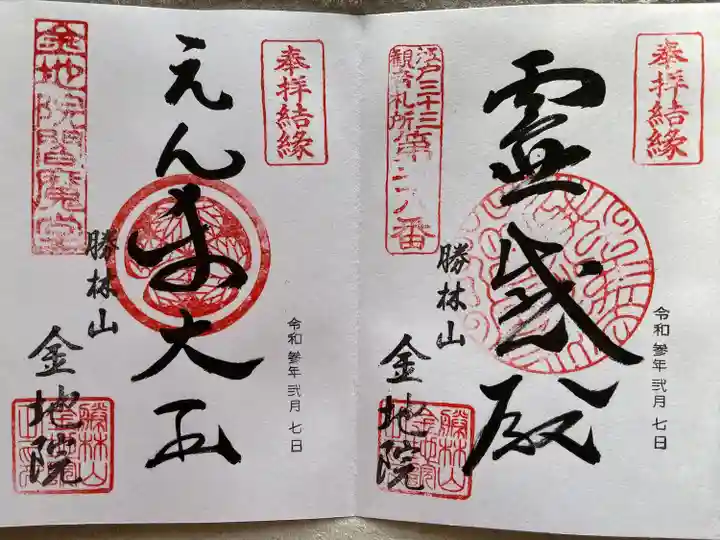 奉拝結縁
江戸三十三
観音札所
第二八番
霊感殿
勝林山
金地院
令和参年弐月七日
勝林山
金地院
奉拝結縁
金地院閻魔堂
えんま大王
勝林山
金地院
令和参年弐月七日
勝林山